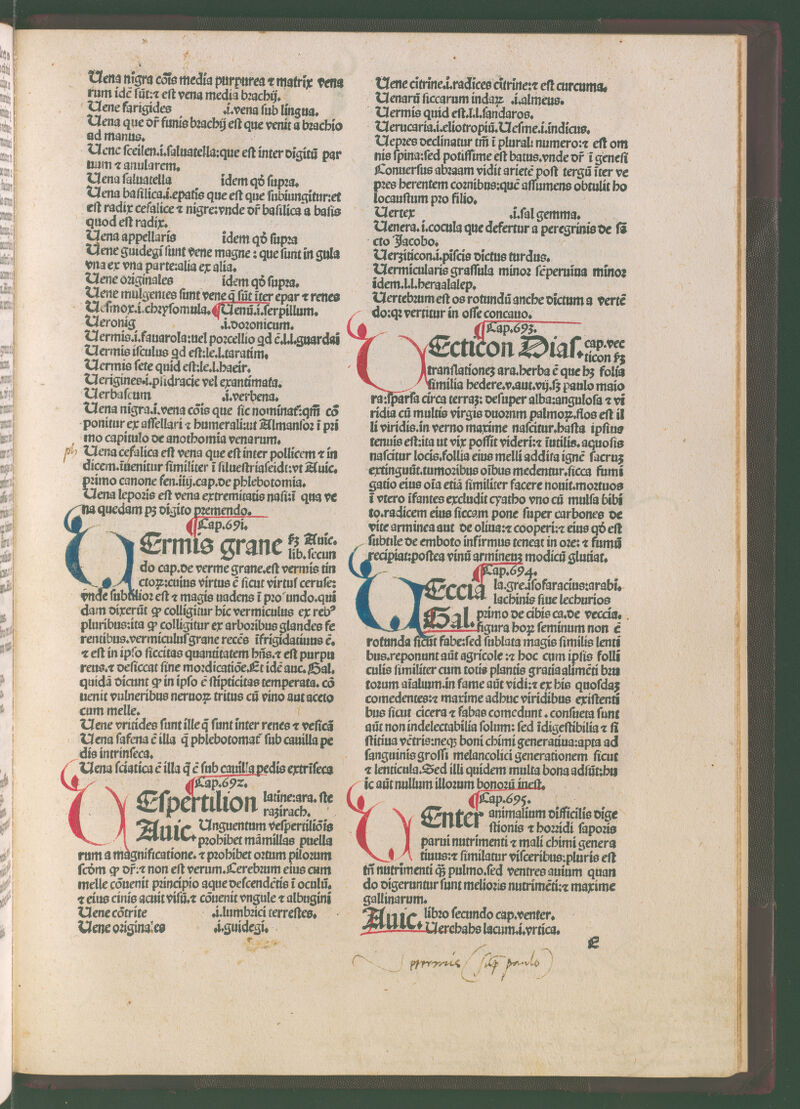 Uena nigra cōis media purpurea ⁊ matrix vena
rum idē sūt:⁊ est vena media brachij.
Uene farigides .i.vena sub lingua.
Uena que dr̄ funis brachij est que venit a brachio
ad manus.
Uene sceilen.i.saluatella:que est inter digitū par
uum ⁊ anularem.
Uena saluatella idem qd̄ supra.
Uena basilica.i.epatis que est que subiungitur:et
est radix cefalice ⁊ nigre:vnde dr̄ basilica a basis
quod est radix.
Uena appellaris idem qd̄ supra
Uene guidegi sunt vene magne : que sunt in gula
vna ex vna parte:alia ex alia.
Uene originales idem qd̄ supra.
Uene mulgentes sunt vene q̄ sūt īter epar ⁊ renes
Uesmox.i.chrysomula. ¶Uenū.i.serpillum.
Ueronig .i.doronicum.
Uermis.i.fauarola:uel porcellio qd ē.l.l.guardai
Uermis isculus qd est:le.l.taratim.
Uermis sete quid est:le.l.haeir.
Uerigines.i.phdracie vel exantimata.
Uerbascum .i.verbena.
Uena nigra.i.vena cōis que sic nominat᷑:qm̄ cō
ponitur ex assellari ⁊ humerali:ut Almansor ī pri
mo capitulo de anothomia venarum.
Uena cefalica est vena que est inter pollicem ⁊ in
dicem.īuenitur similiter ī siluestriaseidt:vt Auic.
primo canone fen.iiij.cap.de phlebotomia.
Uena leporis est vena extremitatis nasi:ī qua ve
na quedam pʒ digito premendo.
¶Cap.69i.
UErmis grane fʒ Auic.
lib.secun
do cap.de verme grane.est vermis tin
ctoꝝ:cuius virtus ē sicut virtus ceruse:
vnde subtilior est ⁊ magis uadens ī profundo.qui
dam dixerūt ꝙ colligitur hic vermiculus ex rebꝰ
pluribus:ita ꝙ colligitur ex arboribus glandes fe
rentibus.vermiculusꝰ grane recēs īfrigidatiuus ē.
⁊ est in ipso siccitas quantitatem hn̄s.⁊ est purpu
reus.⁊ desiccat sine mordicatiōe.Et idē auc. Gal.
quidā dicunt ꝙ in ipso ē stipticitas temperata. cō
uenit vulneribus neruoꝝ tritus cū vino aut aceto
cum melle.
Uene vritides sunt ille q̄ sunt inter renes ⁊ vesicā
Uena safena ē illa q̄ phlebotomat᷑ sub cauilla pe
dis intrinseca.
Uena sciatica ē illa q̄ ē sub cauilla pedis extrīseca
¶Cap.692.
UEspertilion latine:ara. ste
razirach.
Auic. Unguentum vespertiliōis
prohibet māmillas puella
rum a magnificatione. ⁊ prohibet ortum pilorum
scd̄m ꝙ dr̄:⁊ non est verum.Cerebrum eius cum
melle cōuenit principio aque descendētis ī oculū.
⁊ eius cinis acuit visū.⁊ cōuenit vngule ⁊ albugini
Uene cōtrite .i.lumbrici terrestes.
Uene originales .i.guidegi.
Uene citrine.i.radices citrine:⁊ est curcuma.
Uenarū siccarum indaꝝ .i.almeus.
Uermis quid est.l.l.sandaros.
Uerucaria.i.eliotropiū.Uesme.i.indicus.
Uepres declinatur tm̄ ī plurali numero:⁊ est om
nis spina:sed potissime est batus.vnde dr̄ ī genesi
Conuersus abraam vidit arietē post tergū īter ve
pres herentem cornibus:quē assumens obtulit ho
locaustum pro filio.
Uertex .i.sal gemma.
Uenera.i.cocula que defertur a peregrinis de sā
cto Jacobo.
Uerziticon.i.piscis dictus turdus.
Uermicularis grassula minor sēperuiua minor
idem.l.l.beraalalep.
Uertebrum est os rotundū anche dictum a vertē
do:qꝛ vertitur in osse concauo.
¶Cap.693.
UEcticon Dias. cap.vec
ticon fʒ
translationeʒ ara.herba ē que hʒ folia
similia hedere.v.aut.vij.sʒ paulo maio
ra:sparsa circa terraʒ: desuper alba:angulosa ⁊ vi
ridia cū multis virgis duorum palmoꝝ.flos est il
li viridis.in verno maxime nascitur.hasta ipsius
tenuis est:ita ut vix possit videri:⁊ īutilis.aquosis
nascitur locis.follia eius melli addita ignē sacruʒ
extinguūt.tumoribus oībus medentur.sicca fumi
gatio eius oīa etiā similiter facere nouit.mortuos
ī vtero īfantes excludit cyatho vno cū mulsa bibi
to.radicem eius siccam pone super carbones de
vite arminea aut de oliua:⁊ cooperi:⁊ eius qd̄ est
subtile de emboto infirmus teneat in ore: ⁊ fumū
recipiat:postea vinū armineuʒ modicū glutiat.
¶Cap.694.
UEccia la.gre.isofaracius:arabi.
lachinis siue lechurios
Gal. primo de cibis ca.de veccia.
figura hoꝝ seminum non ē
rotunda sicut fabe:sed sublata magis similis lenti
bus.reponunt aūt agricole:⁊ hoc cum ipsis folli
culis similiter cum totis plantis gratia alimēti bru
torum aīalium.in fame aūt vidi:⁊ ex his quosdaʒ
comedentes:⁊ maxime adhuc viridibus existenti
bus sicut cicera ⁊ fabas comedunt . consueta sunt
aūt non indelectabilia solum: sed īdigestibilia ⁊ sī
stitiua vētris:neqʒ boni chimi generatiua:apta ad
sanguinis grossi melancolici generationem sicut
⁊ lenticula.Sed illi quidem multa bona adsūt:hu
ic aūt nullum illorum bonorū inest.
¶Cap.695.
UEnter animalium difficilis dige
stionis ⁊ horridi saporis
parui nutrimenti ⁊ mali chimi genera
tiuus:⁊ similatur visceribus:pluris est
tn̄ nutrimenti qʒ pulmo.sed ventres auium quan
do digeruntur sunt melioris nutrimēti:⁊ maxime
gallinarum.
Auic. libro secundo cap.venter.
Uerchabs lacum.i.vrtica.
E